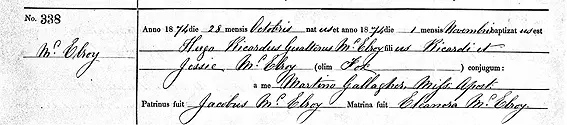 No. 338
Mc Elroy
Anno 1874 die 28 mensis Octobris natus est et 1874 die 1 mensis Novembris baptizatus est
Hugo Ricardus Gualterus Mc Elroy filius Ricardi et
Jessie Mc Elroy (olim Fox) conjugum:
a me Martino Gallagher, Miss. Apost.
Patrinus fuit Jacobus Mc Elroy Matrina fuit Eleanora Mc Elroy